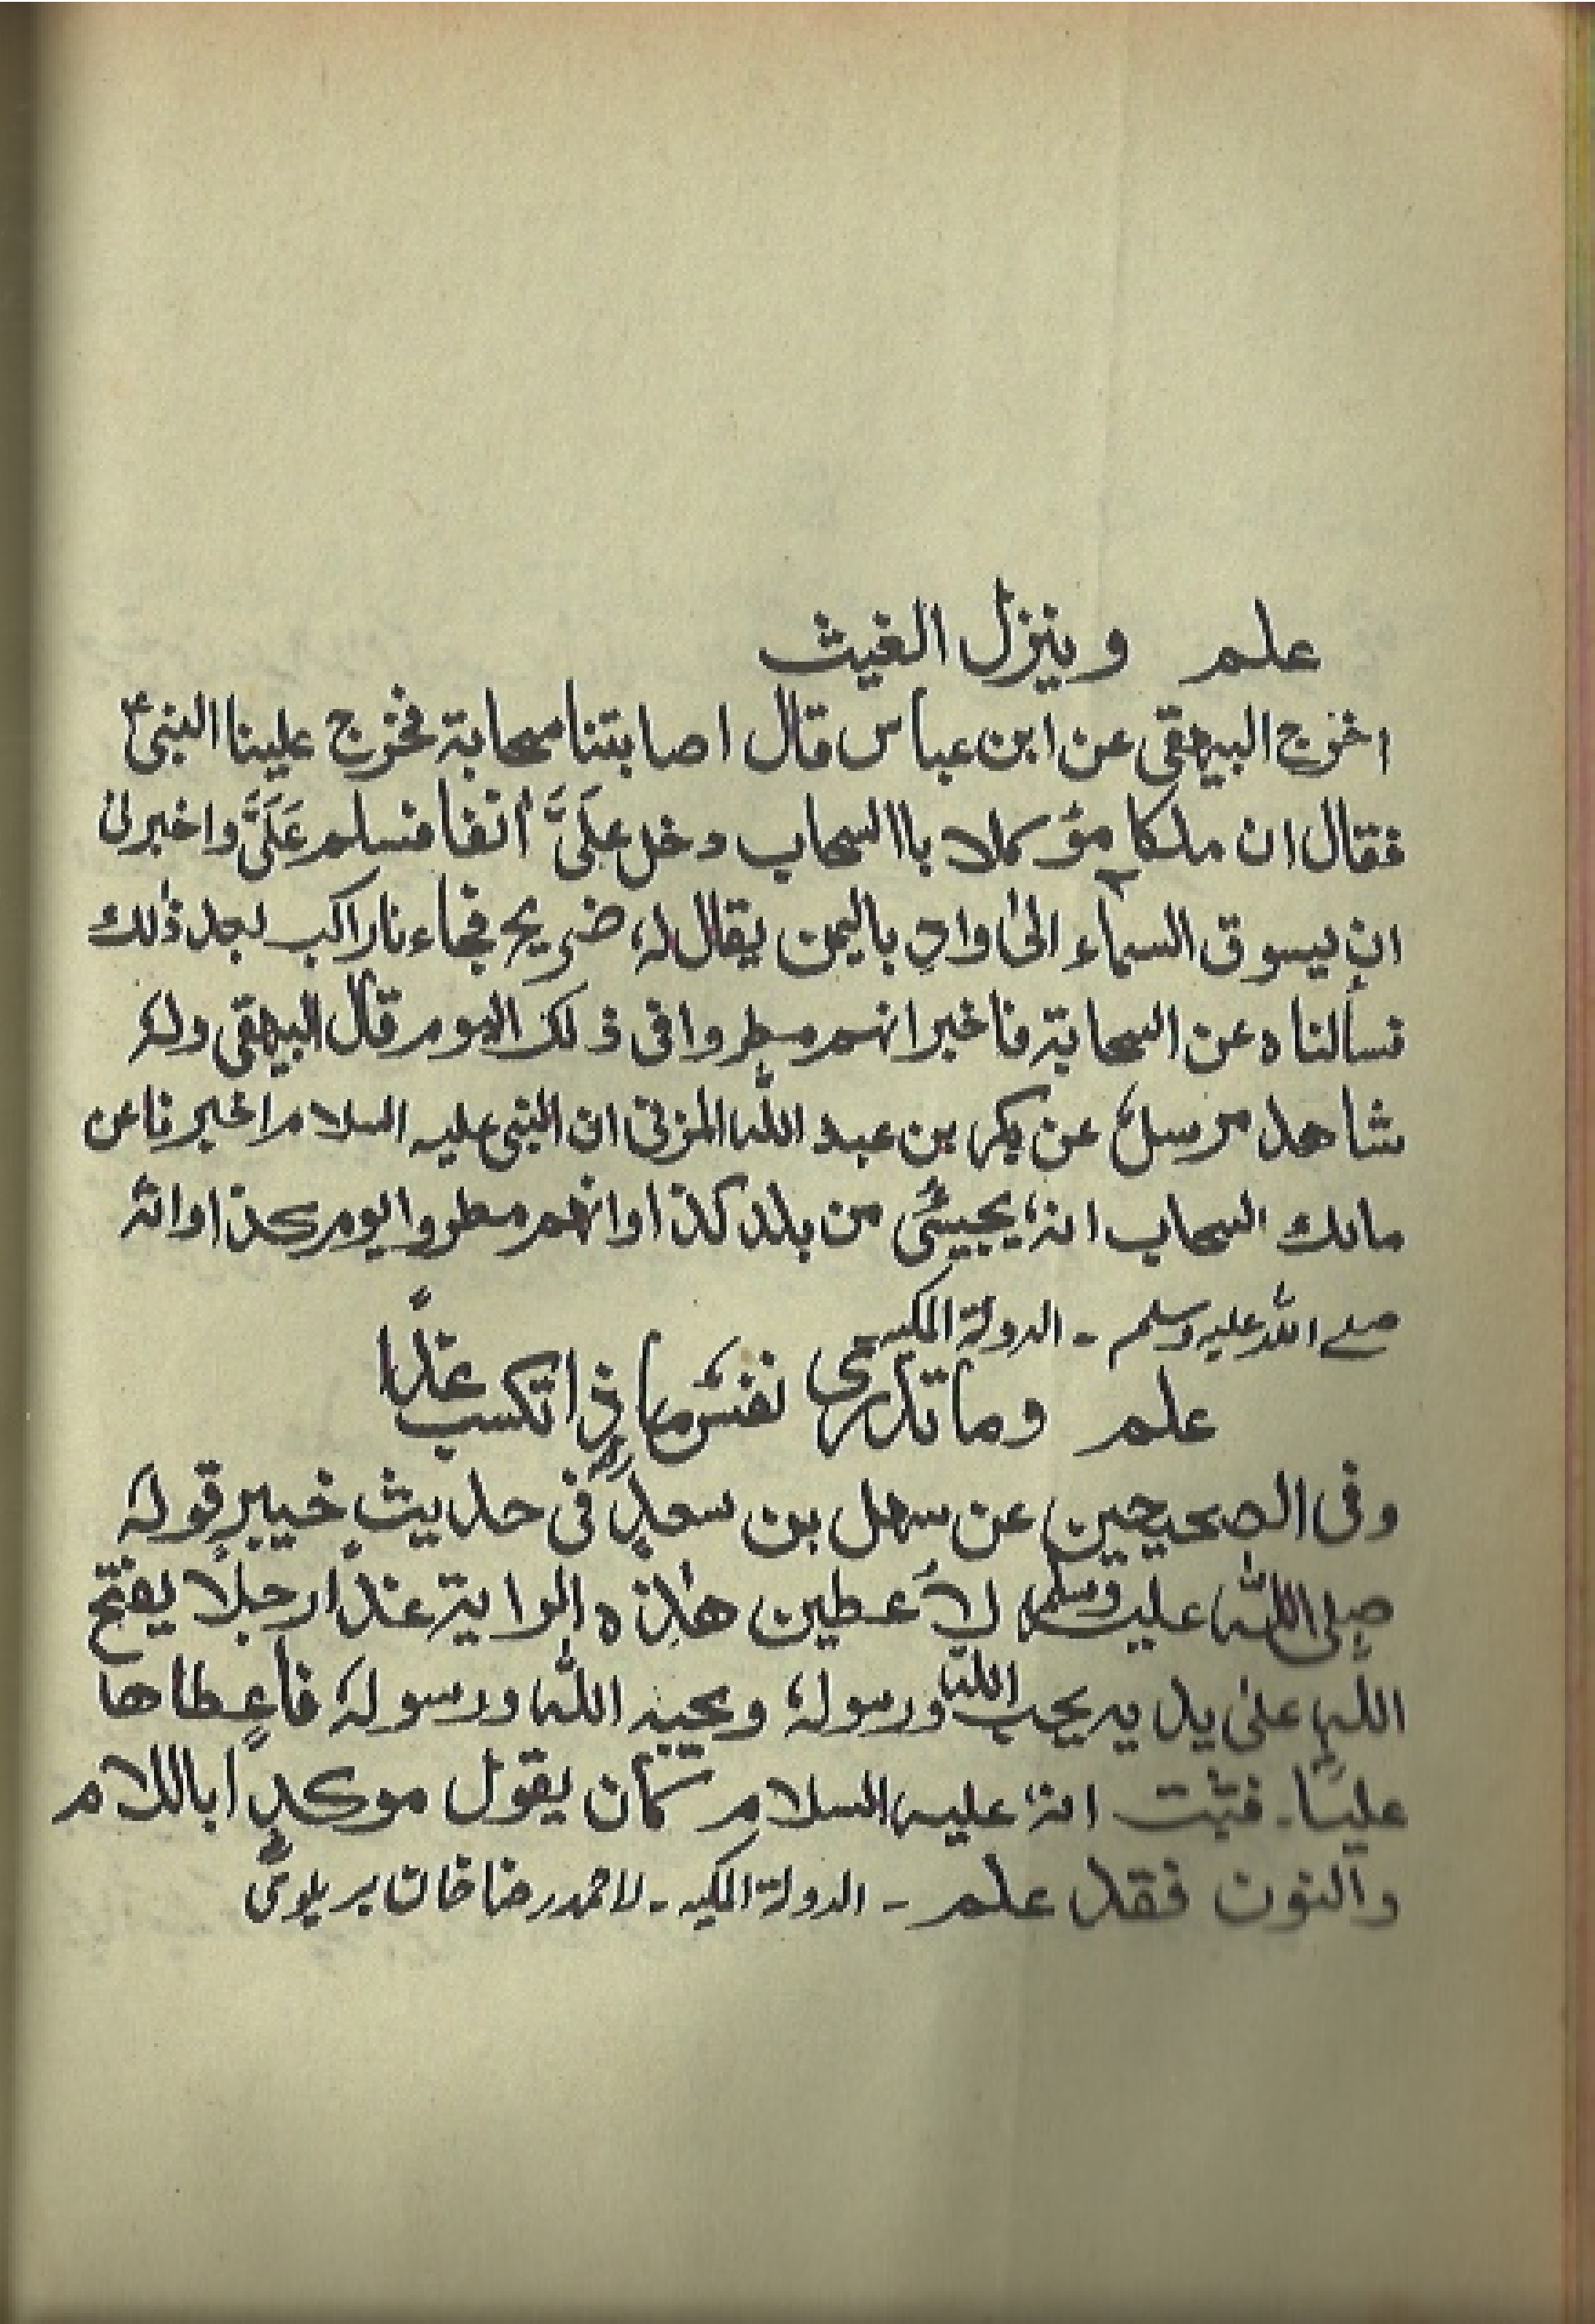 علم وینزل الغیث
اخرج البیهقی عن ابن عباس قال اصابتنا سحابة فخرج علینا النبیؐ
فقال ان ملکا مؤکلا باالسحاب دخل عَلَیَّ اٰنفا فسلم عَلَیَّ واخبرنی
انه یسوق السماء الیٰ وادٍ بالیمن یقال لهٗ ضریح فجاء نا راکب بعد ذٰلك
فسألناه عن السحابة فاخبر انهم مطروا فی ذٰلك الیوم قال البیهقی ولهٗ
شاهد مرسلٌ عن بکر بن عبد اللّٰه المزنی ان النبی علیه السلام اخبرنا عن
مالك السحاب انهٗ یجیئُ من بلد کذا وانهم مطروا یوم کذا وانهٗ
صلے اللہ علیہ وسلم ـ الدولة المکیه
علم وما تدری نفسٌ ماذا تکسب غداً
وفی الصحیحین عن سهل بن سعدٍؓ فی حدیثِ خیبرٍ قولهٗ
صلی اللّٰه علیه وسلم لاَعطین هٰذه الرایة غداً رجلاً یفتح
اللّٰه علیٰ یدیه یحب اللّٰه ورسولهٗ ویحبه اللّٰه ورسولهٗ فاَعطاها
علیًّا ـ فثبت انهٗ علیه السلام کَان یقول موکداً باللام
والنون فقد علم ـ الدولة المکیه ـ لاحمد رضا خان بریلویؒ